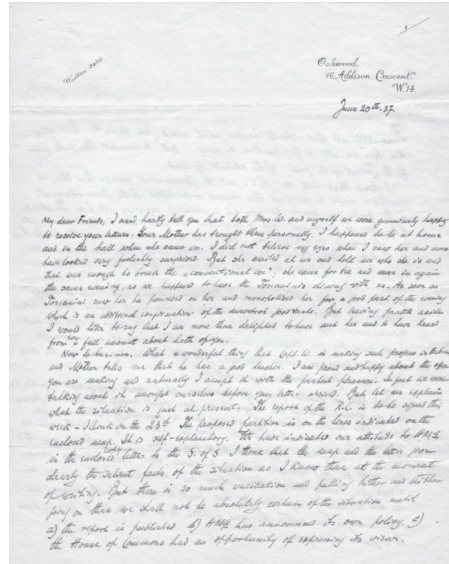 Written 0400
Oakwood.
16, Addison Crescent.
W.14.
June 20th. 37.
My dear Friends, I need hardly tell you that both Mrs. W. and myself we were genuinely happy
to receive your letters. Your Mother has brought them personally. I happened to be at home
and in the hall when she came in. I did not believe my eyes when I saw her and must
have looked very probably surprised. But she smiled at us and told us who she is and
that was enough to break the "conventional ice". She came for tea and came in again
the same evening, as we happened to have the Toscanini's dining with us. As soon as
Toscanini saw her he pounced on her and monopolised her for a good part of the evening
which is an additional confirmation of the
But leaving
aside
I would like to say that I am more than delighted to have met her and to have heard
from her a full account about both of you.
Now to business. What a wonderful thing that Capt. W. is making such progress in Hebrew
and Mother tells me that he has a good teacher. I am proud and happy about the offer
you are making and naturally I accept it with the greatest pleasure. In fact we were
talking about it amongst ourselves before your letter arrived. But let me explain
what the situation is just at present. The report of the R.C. is to be signed this
week - I think on the 23d. The proposed partition is on the lines indicated on the
enclosed map. It is self-explanatory. We have indicated our attitude to HMG
in the enclosed copy letter to the S. of S. I think that the map and the letter give
clearly the salient facts of the situation as I know them at the moment
of writing. But there is so much vacillation and
going on that we shall not be absolutely certain of the situation until
a) the report is published b) HMG has announced its own policy c)
the House of Commons had an opportunity of expressing its views.